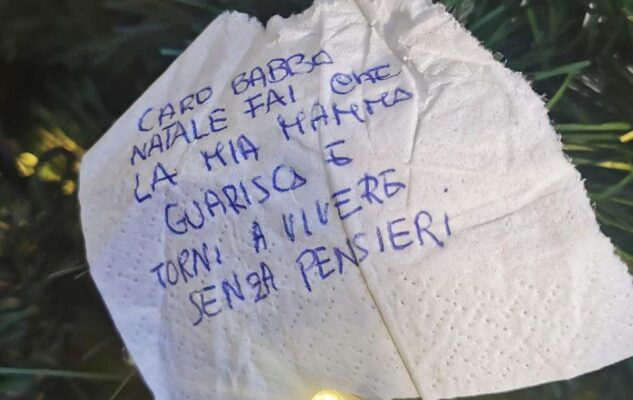 CARO BABBO
NATALE FAI CHE
LA MIA MAMMA
GUARISCA E
TORNI A VIVERE
SENZA PENSIERI